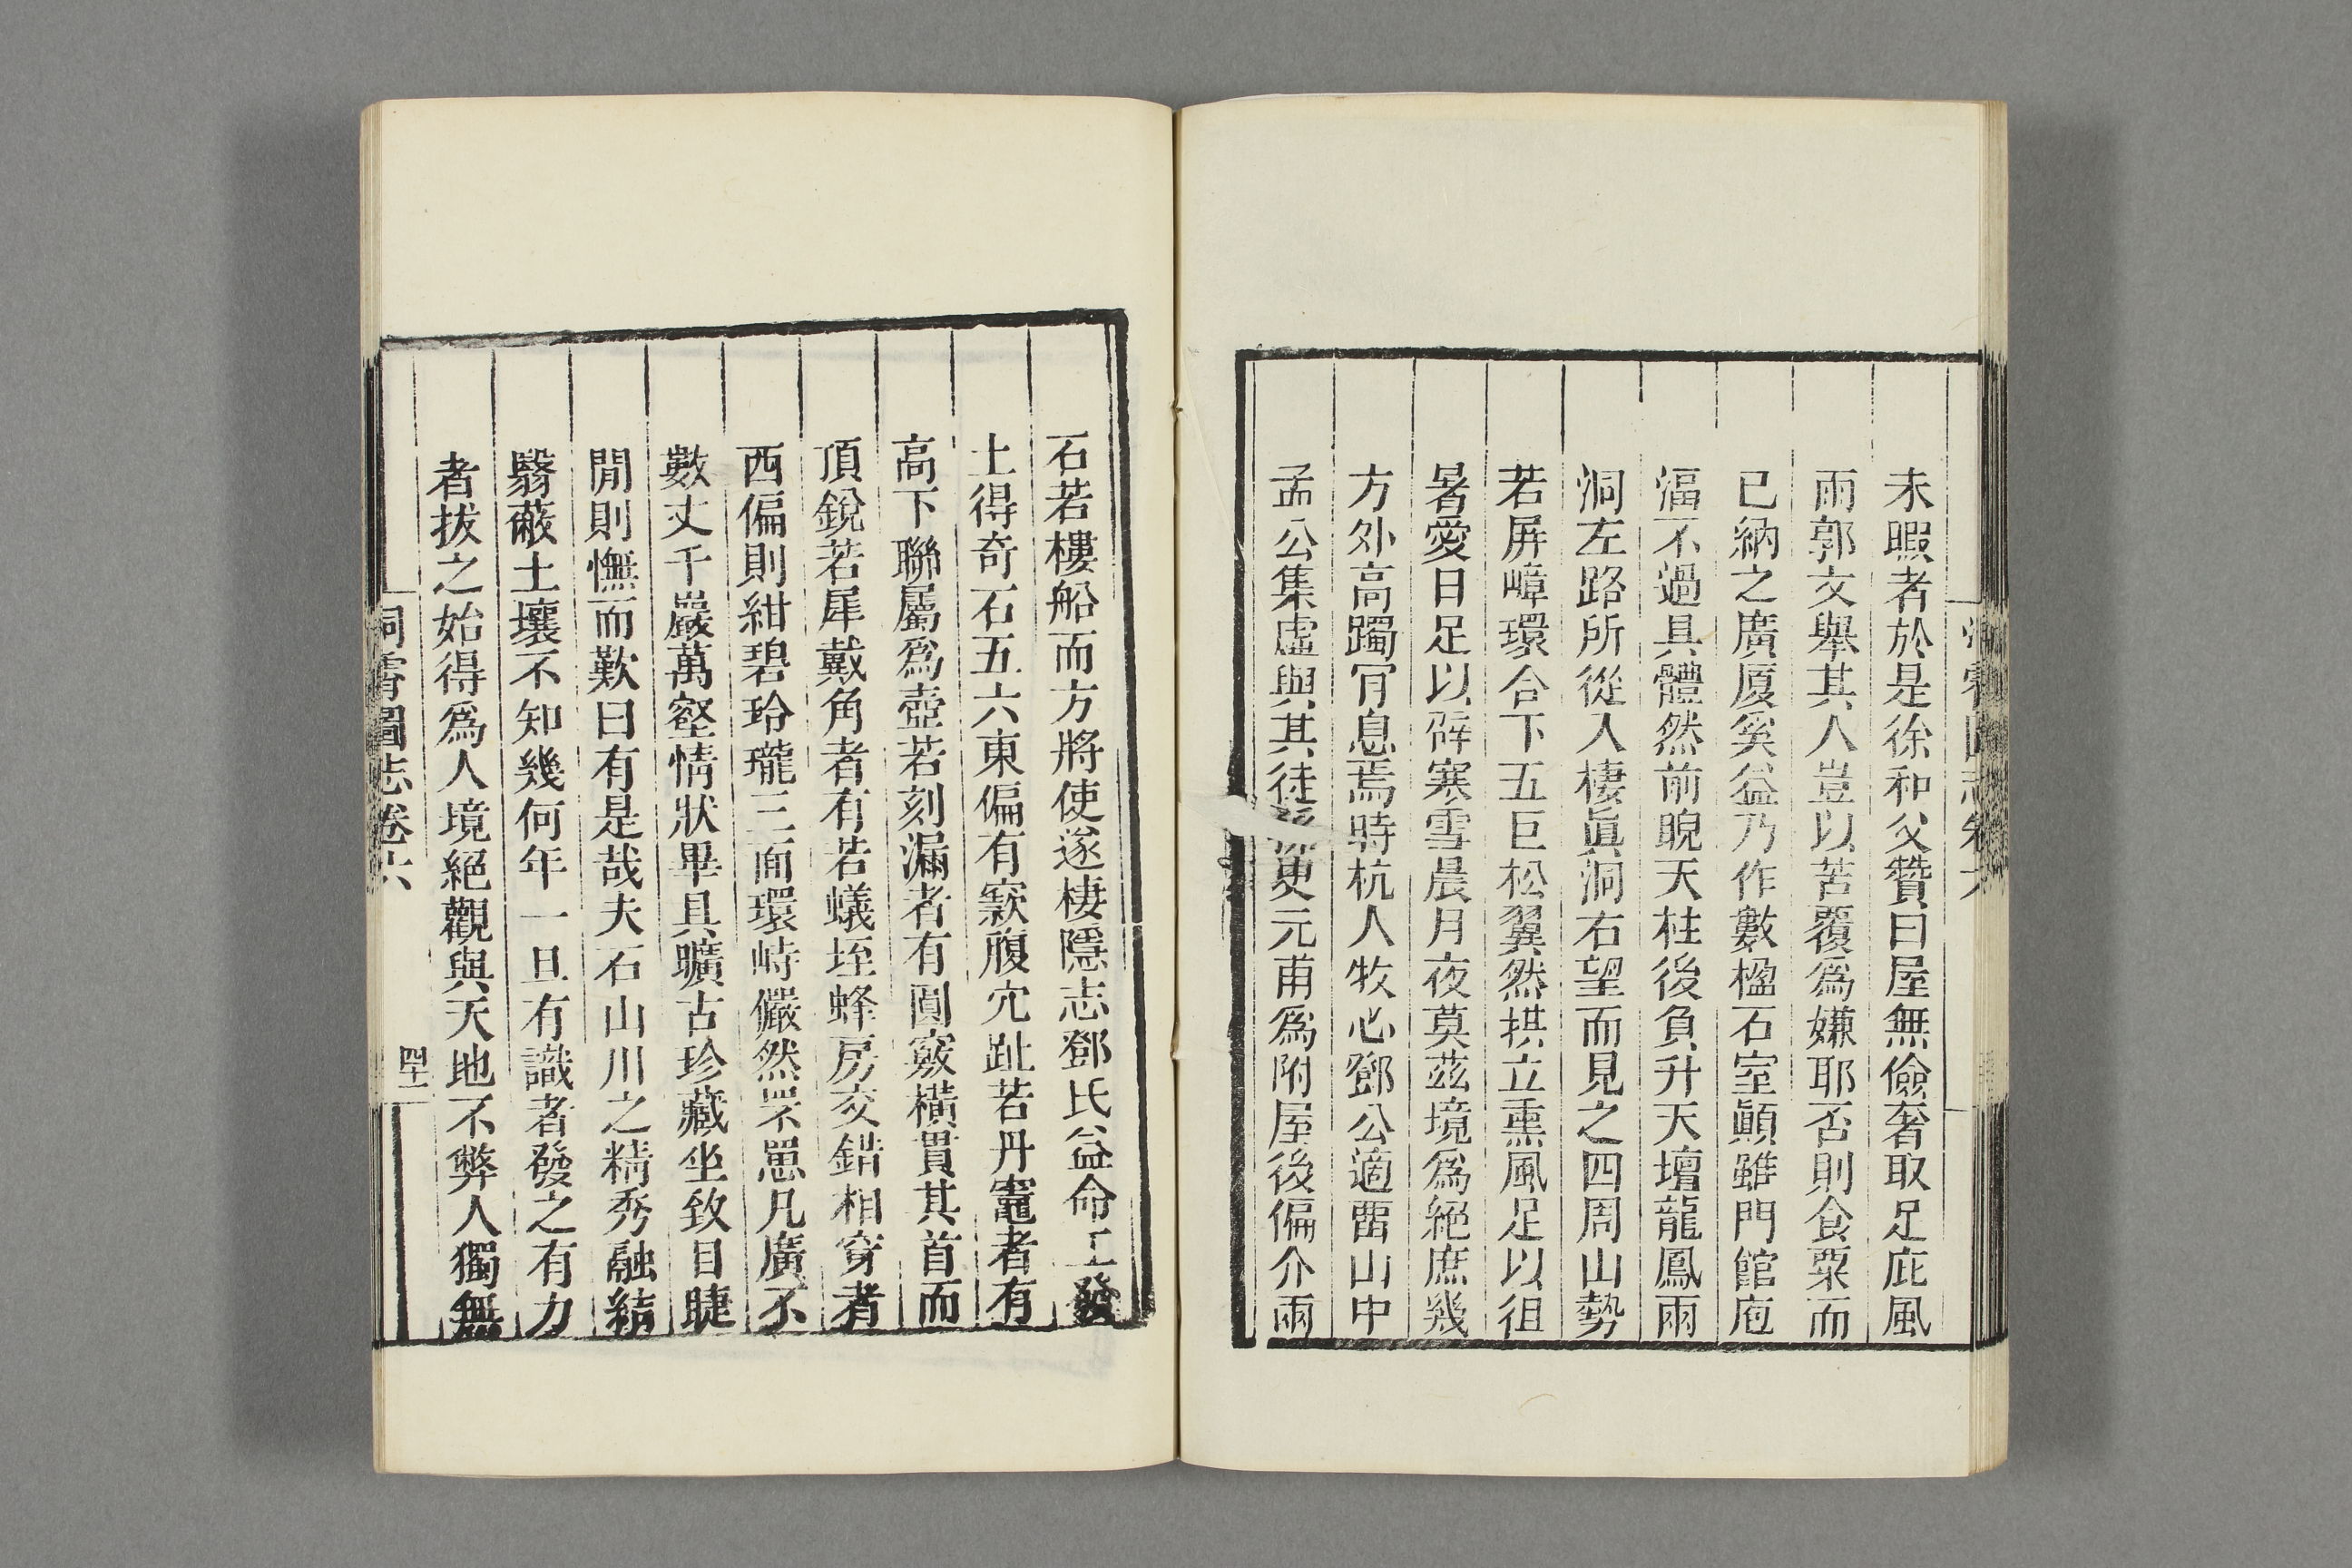 未暇者於是徐和父贊曰屋無儉奢取足庇風
雨郭文舉其人豈以苫覆爲嫌耶否則食粟而
已納之廣厦奚益乃作數楹石室顚雖門館庖
湢不過具體然前睨天柱後負升天壇龍鳳兩
洞左路所從入棲眞洞右望而見之四周山勢
若屏嶂環合下五巨松翼然拱立熏風足以徂
暑愛日足以辟寒雪晨月夜莫茲境爲絕庶幾
方外高躅肎息焉時杭人牧心鄧公適畱山中
孟公集虛與其徒更元甫爲附屋後偏介兩
石若樓船而方將使遂棲隱志鄧氏益命工發
土得奇石五六東偏有窾腹穴趾若丹竈者有
高下聯屬爲壺若刻漏者有圓竅橫貫其首而
頂銳若犀戴角者有若蟻垤蜂房交錯相穿者
西偏則紺碧玲瓏三面環峙儼然罘罳凡廣不
數丈千巖萬壑情狀畢具曠古珍藏坐致目睫
閒則憮而歎曰有是哉夫石山川之精秀融結
翳蔽土壤不知幾何年一旦有識者發之有力
者拔之始得爲人境絕觀與天地不弊人獨無
洞霄圖志卷六